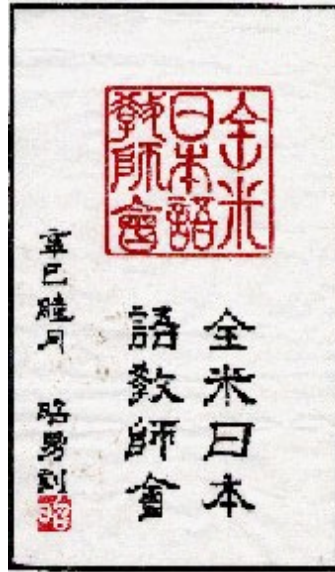 全米
日本語
教師會
全米日本
語教師會
辛巳睦月 昭 刻